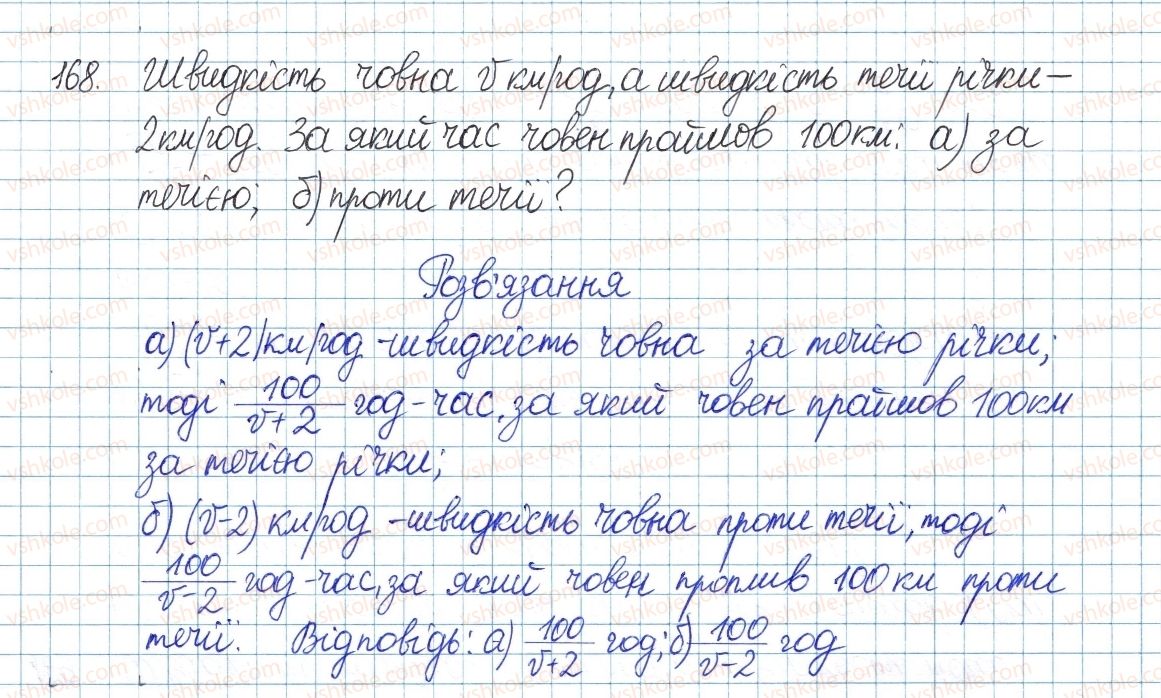 168. Швидкість човна v км/год, а швидкість течії річки –
2км/год. За який час човен пройшов 100км: а) за
течією; б) проти течії?
Розв'язання
а) (v+2) км/год - швидкість човна за течією річки;
тоді 100/(v+2) год - час, за який човен пройшов 100км
за течією річки;
б) (v-2) км/год - швидкість човна проти течії, тоді
100/(v-2) год - час, за який човен проплив 100км проти
течії. Відповідь: а) 100/(v+2) год; б) 100/(v-2) год